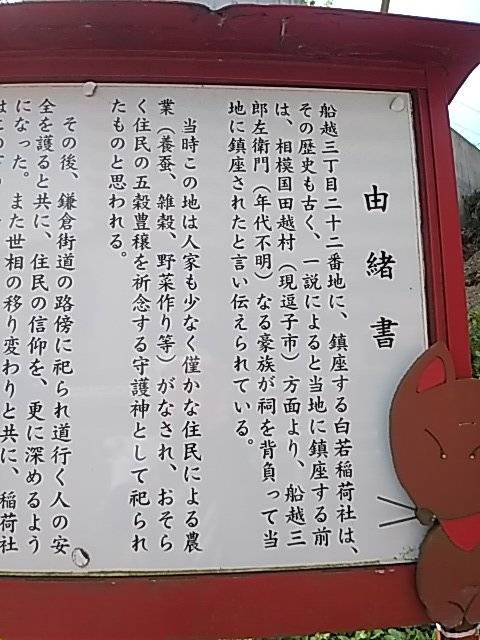 由緒書
船越三丁目二十二番地に、鎮座する白若稲荷社は、
その歴史も古く、一説によると当地に鎮座する前
は、相模国田越村（現逗子市）方面より、船越三
郎左衛門（年代不明）なる豪族が祠を背負って当
地に鎮座されたと言い伝えられている。
当時この地は人家も少なく僅かな住民による農
業（養蚕、雑穀、野菜作り等）がなされ、おそら
く住民の五穀豊穣を祈念する守護神として祀られ
たものと思われる。
その後、鎌倉街道の路傍に祀られ道行く人の安
全を護ると共に、住民の信仰を、更に深めるよう
になった。また世相の移り変わりと共に、稲荷社